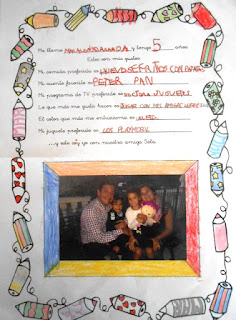 Me llamo y tengo 5 años
Estos son mis gustos:
Mi comida preferida es HUEVOS FRITOS CON PATATAS
Mi cuento favorito es PETER PAN
Mi programa de TV preferido es DOCTORA JUGUETES
Lo que más me gusta hacer es JUGAR CON MIS
El color que más me entusiasma es
Mi juguete preferido es LOS PLAYMOBIL
...y este soy yo con nuestro amigo